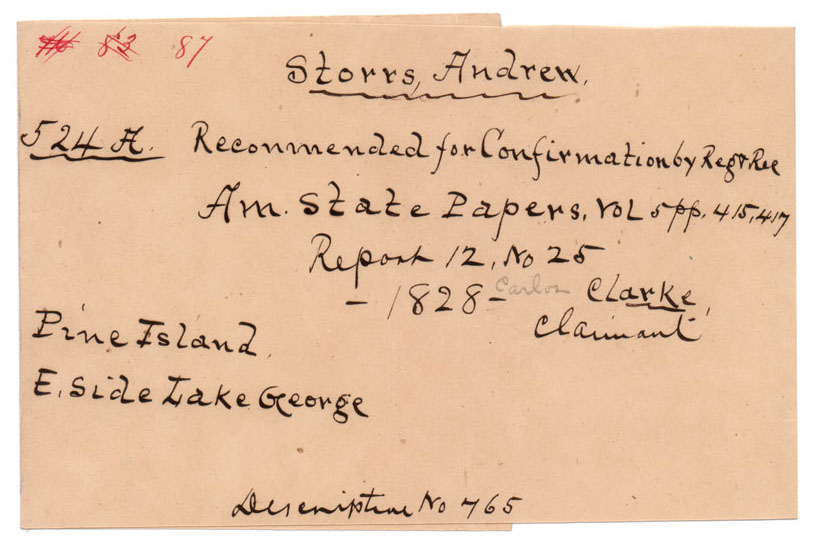 83 87
Storrs, Andrew.
524 A. Recommended for Confirmation by Reg & Rec
Am. State Papers, Vol 5 pp. 415, 417
Report 12, No 25
- 1828 - Carlos Clarke,
Claimant
Pine Island.
E. Side Lake George
Descriptive No 765